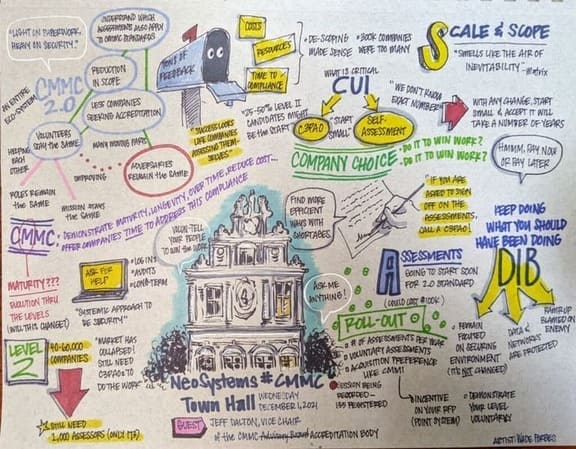 "LIGHT ON PAPERWORK,
HEAVY ON SECURITY."
UNDERSTAND WHICH
ASSESSMENTS ALSO APPLY
TO CMMC STANDARDS
CMMC
2.0
AN ENTIRE
ECO-SYSTEM
REDUCTION
IN SCOPE
LESS COMPANIES
SEEKING ACCREDITATION
VOLUNTEERS
STAY THE SAME
MANY MOVING PARTS
ADVERSARIES
REMAIN THE SAME
HELPING
EACH
OTHER
IMPROVING
ROLES REMAIN
THE SAME
MISSION STAYS
THE SAME
TONS OF
FEEDBACK
COSTS
RESOURCES
TIME TO
COMPLIANCE
"SUCCESS LOOKS
LIKE COMPANIES
ASSESSING THEM-
SELVES"
• DE-SCOPING
MADE SENSE
• 300K COMPANIES
WERE TOO MANY
• 25-50% LEVEL II
CANDIDATES MIGHT
BE THE START
WHAT IS CRITICAL
CUI
C3PAO
"START
SMALL"
SELF-
ASSESSMENT
"WE DON'T KNOW
EXACT NUMBER"
COMPANY CHOICE
• DO IT TO WIN WORK?
• DO IT TO WIN WORK?
SCALE & SCOPE
"SMELLS LIKE THE AIR OF
INEVITABILITY" -Matrix
WITH ANY CHANGE, START
SMALL & ACCEPT IT WILL
TAKE A NUMBER OF YEARS
HMMM, PAY NOW
OR PAY LATER
• IF YOU ARE
ASKED TO SIGN
OFF ON THE
ASSESSMENTS,
CALL A C3PAO!
KEEP DOING
WHAT YOU SHOULD
HAVE BEEN DOING
DIB
• REMAIN
FOCUSED
ON SECURING
ENVIRONMENT
(IT'S NOT CHANGED)
DATA &
NETWORKS
ARE PROTECTED
RAMP-UP
BLAMED ON
ENEMY
CMMC:
DEMONSTRATE MATURITY, LONGEVITY, OVER TIME, REDUCE COST...
OFFER COMPANIES TIME TO ADDRESS THIS COMPLIANCE
MATURITY???
EVOLUTION THRU
THE LEVELS
(WILL THIS CHANGE?)
ASK FOR
HELP
• LOG INS
• AUDITS
• LONG-TERM
"SYSTEMIC APPROACH TO
SECURITY"
VOLUN-TELL
YOUR PEOPLE
TO WIN THE WORK
FIND MORE
EFFICIENT
WAYS WITH
SHORTAGES
ASK ME
ANYTHING!
ASSESSMENTS
GOING TO START SOON
FOR 2.0 STANDARD
(COULD COST $100K)
ROLL-OUT
• # OF ASSESSMENTS PER YEAR
• VOLUNTARY ASSESSMENTS
• ACQUISITION PREFERENCE
LIKE CMMI
• INCENTIVE
ON YOUR RFP
(POINT SYSTEM)
• DEMONSTRATE
YOUR LEVEL
VOLUNTARILY
LEVEL
2
40-60,000
COMPANIES
"MARKET HAS
COLLAPSED!
STILL NEED
C3PAOs TO
DO THE WORK
STILL NEED
1,000 ASSESSORS
NeoSystems #CMMC
Town Hall
WEDNESDAY
DECEMBER 1, 2021
SESSION BEING
RECORDED -
135 REGISTERED
GUEST
JEFF DALTON, VICE CHAIR
OF THE CMMC Advisory Board ACCREDITATION BODY
ARTIST: WADE FORBES